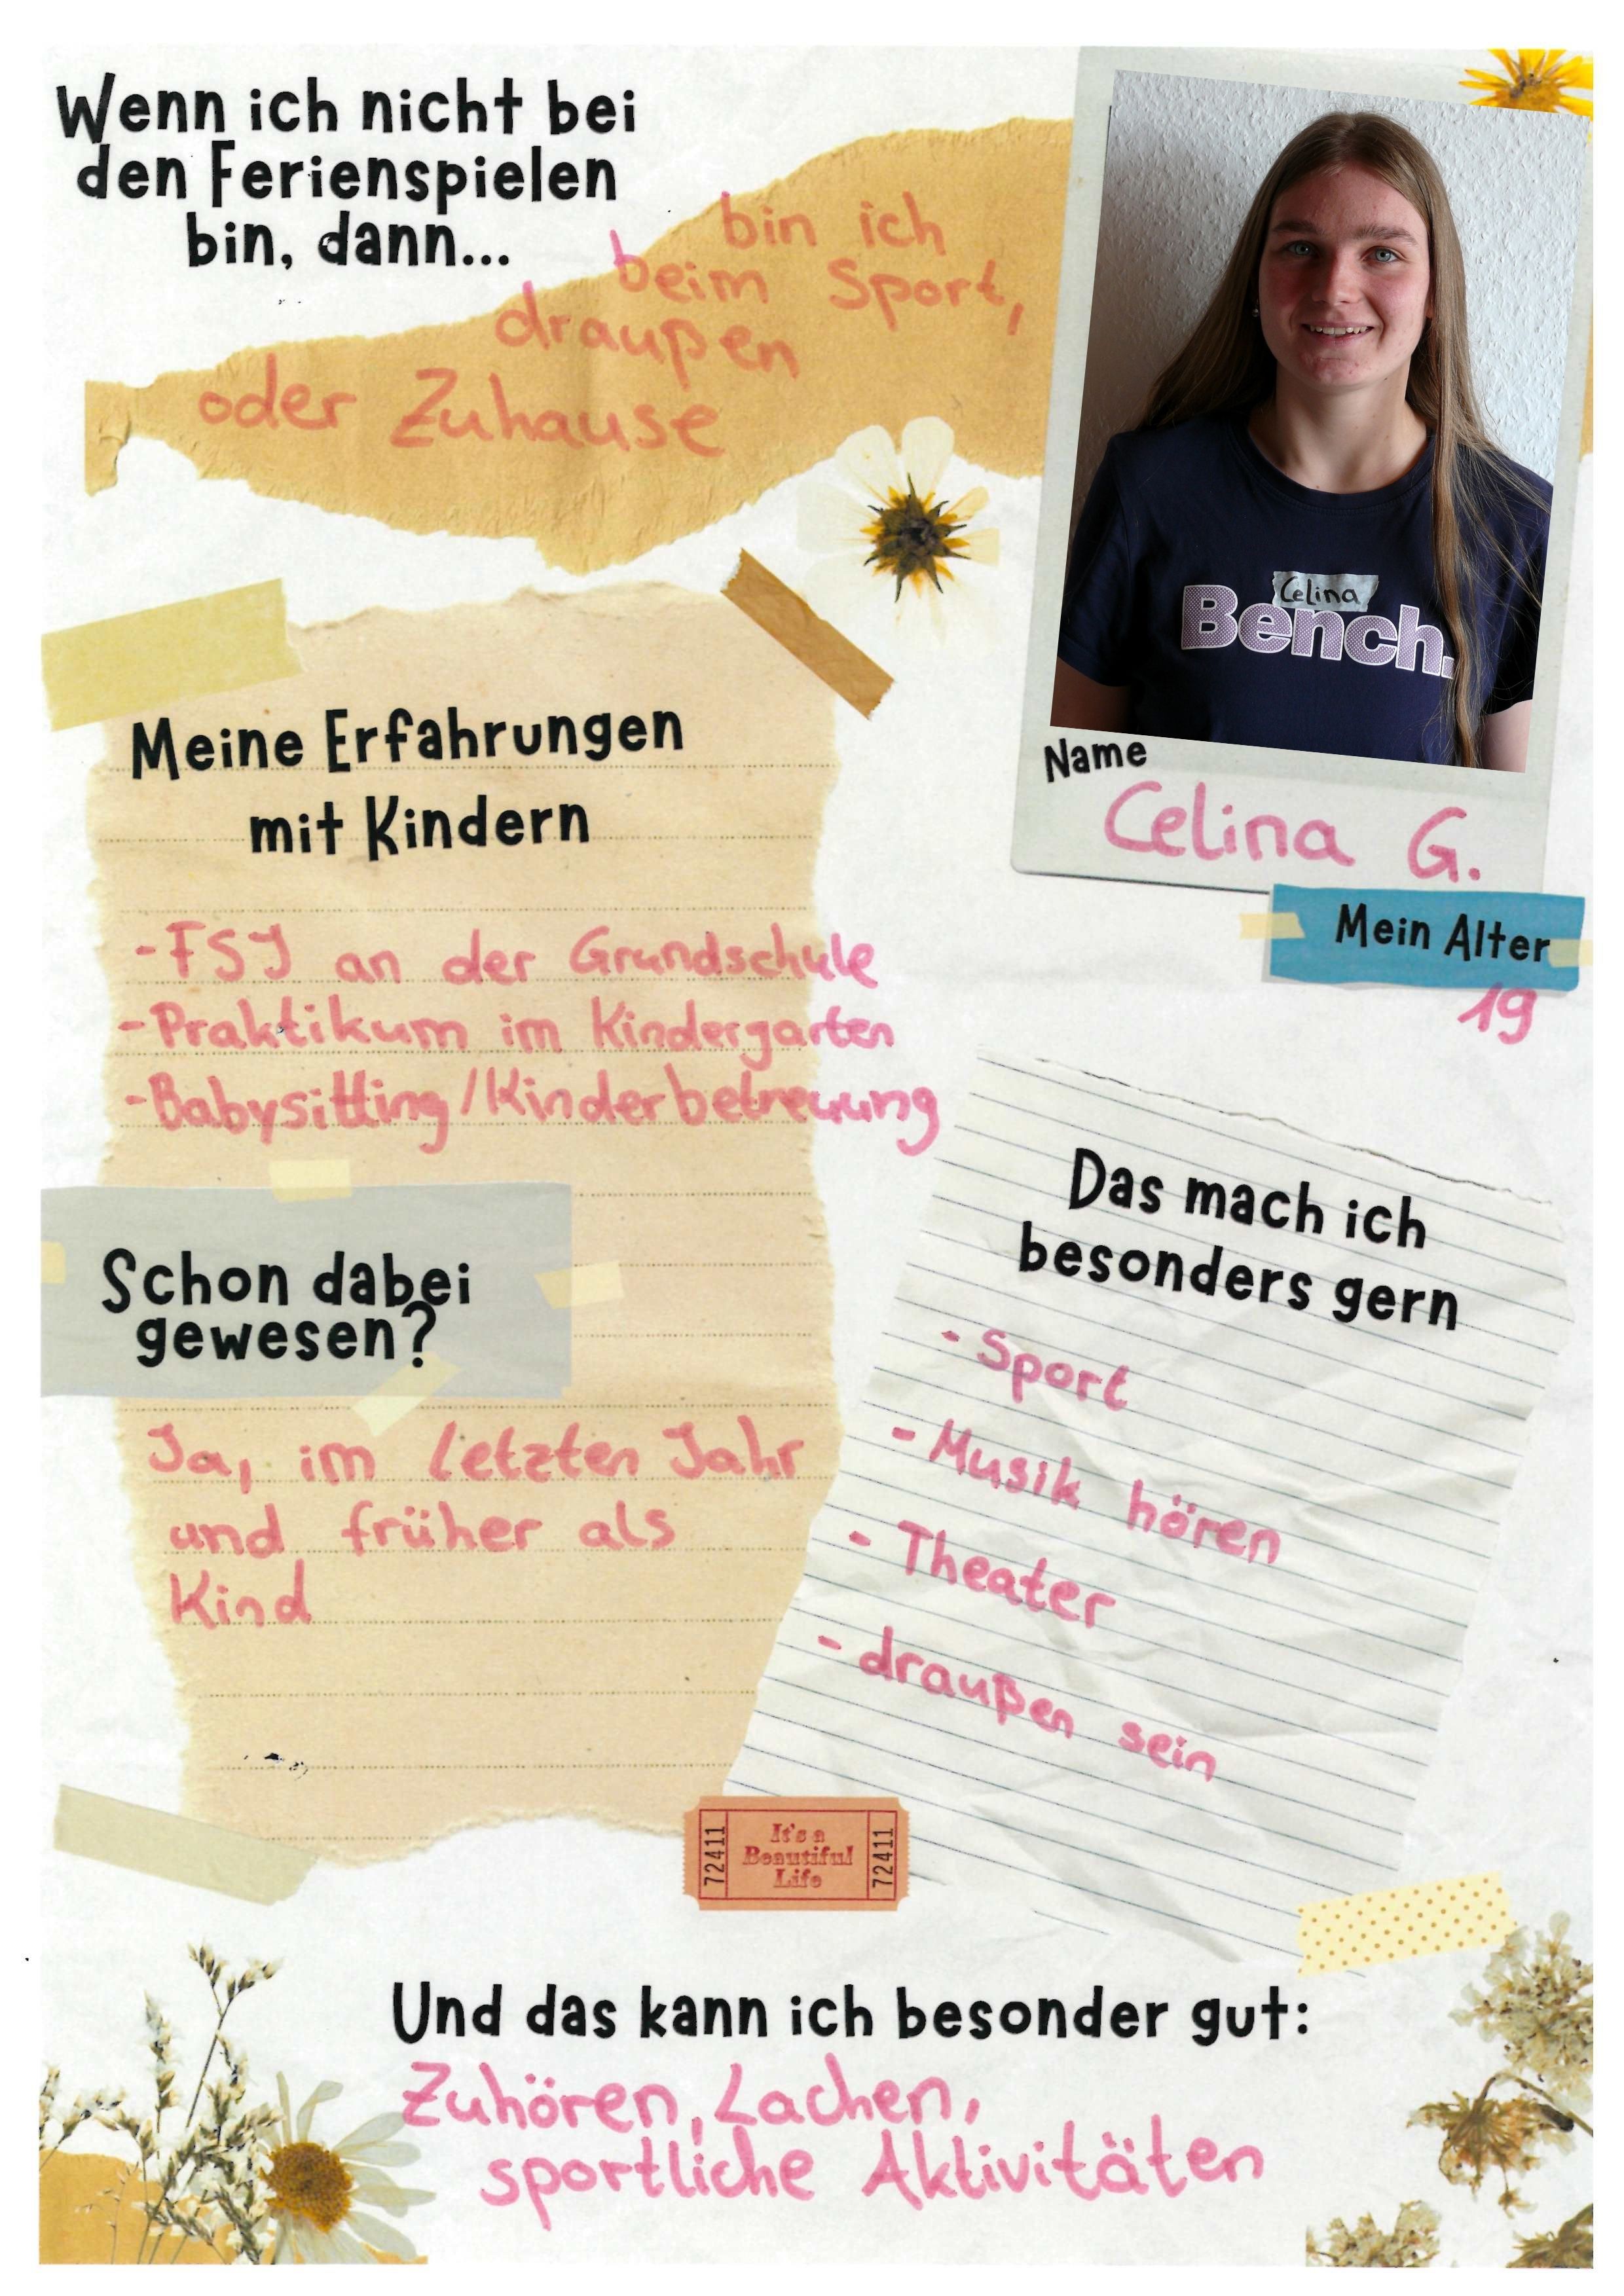 Wenn ich nicht bei
den Ferienspielen
bin, dann...
bin ich
beim Sport,
draußen
oder Zuhause
Celina
Bench.
Name
Celina G.
Mein Alter
19
Meine Erfahrungen
mit Kindern
-FSJ an der Grundschule
-Praktikum im Kindergarten
-Babysitting/Kinderbetreuung
Schon dabei
gewesen?
Ja, im letzten Jahr
und früher als
Kind
Das mach ich
besonders gern
- Sport
- Musik hören
- Theater
- draußen sein
72411
It's a
Beautiful
Life
72411
Und das kann ich besonder gut:
Zuhören, Lachen,
sportliche Aktivitäten